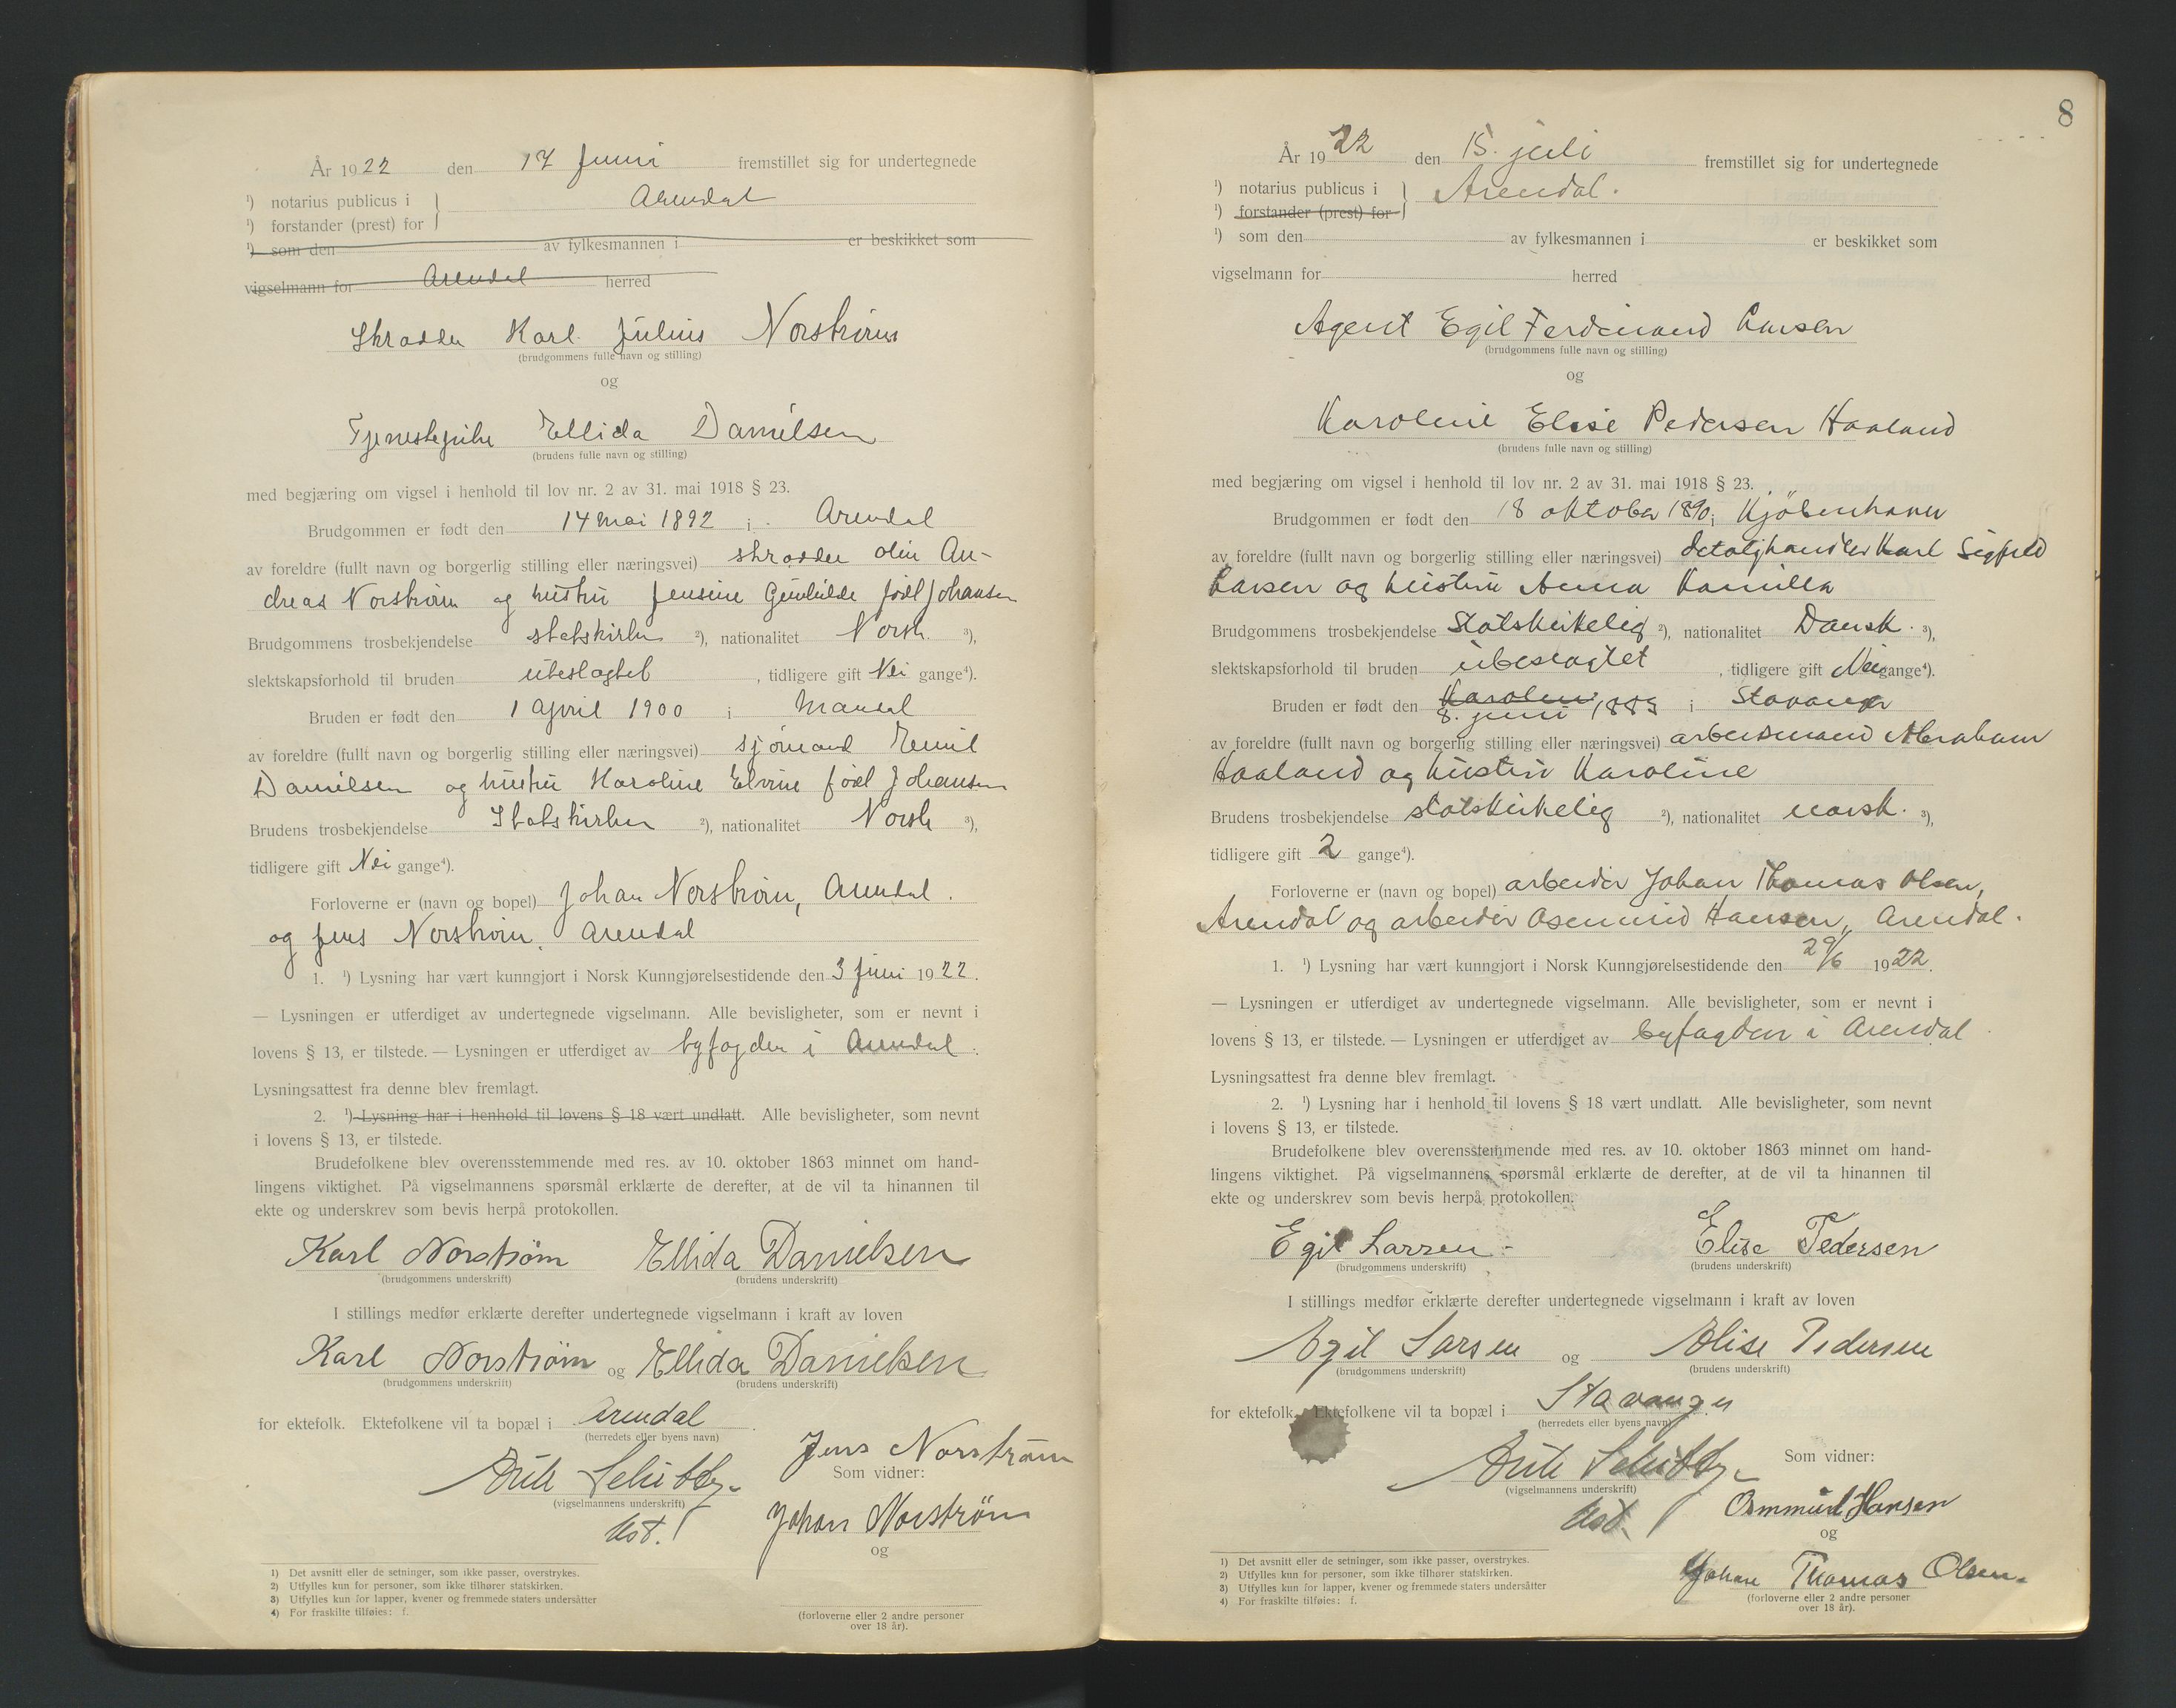 År 1922 den 17 Juni fremstillet sig for undertegnede
¹) notarius publicus i
Arendal
¹) forstander (prest) for
¹) som den av fylkesmannen i er beskikket som
vigselmann for Arendal herred
Skradder Karl Julius Norstrøm
(brudgommens fulle navn og stilling)
og
Tjenestepike Ellida Danielsen
(brudens fulle navn og stilling)
med begjæring om vigsel i henhold til lov nr. 2 av 31. mai 1918 § 23.
Brudgommen er født den 14 mai 1892 i Arendal
av foreldre (fullt navn og borgerlig stilling eller næringsvei) skradder Olin An-
dreas Norstrøm og hustru Jensine Gunhilde født Johansen
Brudgommens trosbekjendelse statskirken ²), nationalitet Norsk ³),
slektskapsforhold til bruden ubeslagtet, tidligere gift Nei gange⁴).
Bruden er født den 1 April 1900 i Mandal
av foreldre (fullt navn og borgerlig stilling eller næringsvei) sjømand Emil
Danielsen og hustru Karoline Elvine født Johansen
Brudens trosbekjendelse Statskirken ²), nationalitet Norsk ³),
tidligere gift Nei gange⁴).
Forloverne er (navn og bopel) Johan Norstrøm, Arendal.
og Jens Norstrøm, Arendal
1. ¹) Lysning har vært kunngjort i Norsk Kunngjørelsestidende den 3 Juni 1922.
— Lysningen er utferdiget av undertegnede vigselmann. Alle bevisligheter, som er nevnt i
lovens § 13, er tilstede. — Lysningen er utferdiget av byfogden i Arendal.
Lysningsattest fra denne blev fremlagt.
2. ¹) Lysning har i henhold til lovens § 18 vært undlatt. Alle bevisligheter, som nevnt
i lovens § 13, er tilstede.
Brudefolkene blev overensstemmende med res. av 10. oktober 1863 minnet om hand-
lingens viktighet. På vigselmannens spørsmål erklærte de derefter, at de vil ta hinannen til
ekte og underskrev som bevis herpå protokollen.
Karl Norstrøm Ellida Danielsen
(brudgommens underskrift) (brudens underskrift)
I stillings medfør erklærte derefter undertegnede vigselmann i kraft av loven
Karl Norstrøm og Ellida Danielsen
(brudgommens underskrift) (brudens underskrift)
for ektefolk. Ektefolkene vil ta bopæl i Arendal.
(herredets eller byens navn)
Jens Norstrøm
Som vidner:
(vigselmannens underskrift)
Johan Norstrøm
og
1) Det avsnitt eller de setninger, som ikke passer, overstrykes.
2) Utfylles kun for personer, som ikke tilhører statskirken.
3) Utfylles kun for lapper, kvener og fremmede staters undersåtter
4) For fraskilte tilføies: f.
(forloverne eller 2 andre personer
over 18 år).
8
År 1922 den 15. juli fremstillet sig for undertegnede
¹) notarius publicus i
Arendal.
¹) forstander (prest) for
¹) som den av fylkesmannen i er beskikket som
vigselmann for herred
Agent Egil Ferdinand Larsen
(brudgommens fulle navn og stilling)
og
Karoline Elise Pedersen Haaland
(brudens fulle navn og stilling)
med begjæring om vigsel i henhold til lov nr. 2 av 31. mai 1918 § 23.
Brudgommen er født den 18 oktober 1890 i Kjöbenhavn
av foreldre (fullt navn og borgerlig stilling eller næringsvei) detaljhandler Karl Sigfred
Larsen og hustru Anna Kamilla
Brudgommens trosbekjendelse Statskirkelig ²), nationalitet Dansk. ³),
slektskapsforhold til bruden ubeslagtet, tidligere gift Nei gange⁴).
Bruden er født den Karoline 8. juni 1885 i Stavanger
av foreldre (fullt navn og borgerlig stilling eller næringsvei) arbeidsmand Abraham
Haaland og hustru Karoline
Brudens trosbekjendelse statskirkelig ²), nationalitet norsk. ³),
tidligere gift 2 gange⁴).
Forloverne er (navn og bopel) arbeider Johan Thomas Olsen,
Arendal og arbeider Osmund Hansen, Arendal.
1. ¹) Lysning har vært kunngjort i Norsk Kunngjørelsestidende den 29/6 1922.
— Lysningen er utferdiget av undertegnede vigselmann. Alle bevisligheter, som er nevnt i
lovens § 13, er tilstede. — Lysningen er utferdiget av byfogden i Arendal
Lysningsattest fra denne blev fremlagt.
2. ¹) Lysning har i henhold til lovens § 18 vært undlatt. Alle bevisligheter, som nevnt
i lovens § 13, er tilstede.
Brudefolkene blev overensstemmende med res. av 10. oktober 1863 minnet om hand-
lingens viktighet. På vigselmannens spørsmål erklærte de derefter, at de vil ta hinannen til
ekte og underskrev som bevis herpå protokollen.
Egil Larsen Elise Pedersen
(brudgommens underskrift) (brudens underskrift)
I stillings medfør erklærte derefter undertegnede vigselmann i kraft av loven
Egil Larsen og Elise Pedersen
(brudgommens underskrift) (brudens underskrift)
for ektefolk. Ektefolkene vil ta bopæl i Stavanger
(herredets eller byens navn)
Som vidner:
(vigselmannens underskrift)
Osmund Hansen
og
Johan Thomas Olsen.
1) Det avsnitt eller de setninger, som ikke passer, overstrykes.
2) Utfylles kun for personer, som ikke tilhører statskirken.
3) Utfylles kun for lapper, kvener og fremmede staters undersåtter
4) For fraskilte tilføies: f.
(forloverne eller 2 andre personer
over 18 år).